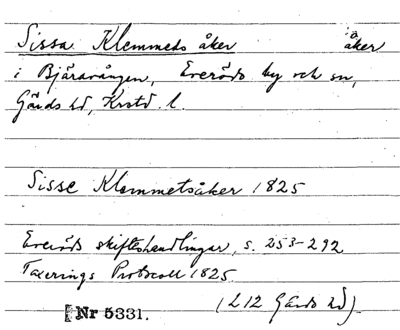 Sissa Klemmeds åker åker
i Bjäravången, Everöds by och sn,
Gärds hd, Krstd. l.
Sisse Klemmetsåker 1825
Everöds skifteshandlingar, s. 253-292
Taxerings Protocoll 1825
(L12 Gärds hd).
Nr 5331.